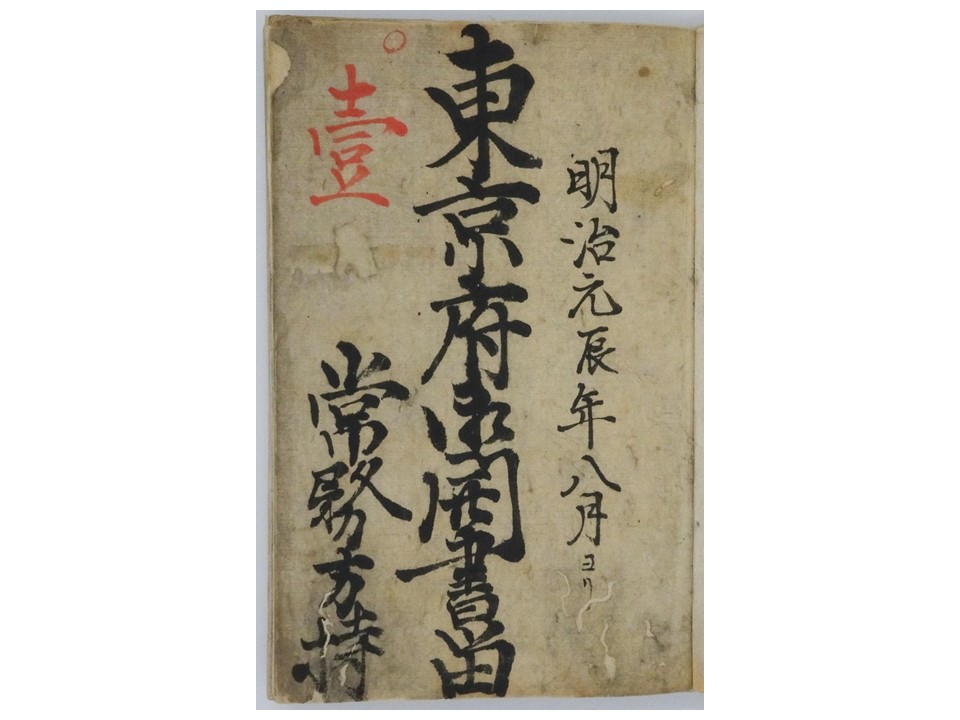 明治元辰年八月ヨリ
東京府御開書畄
壹
常務方持